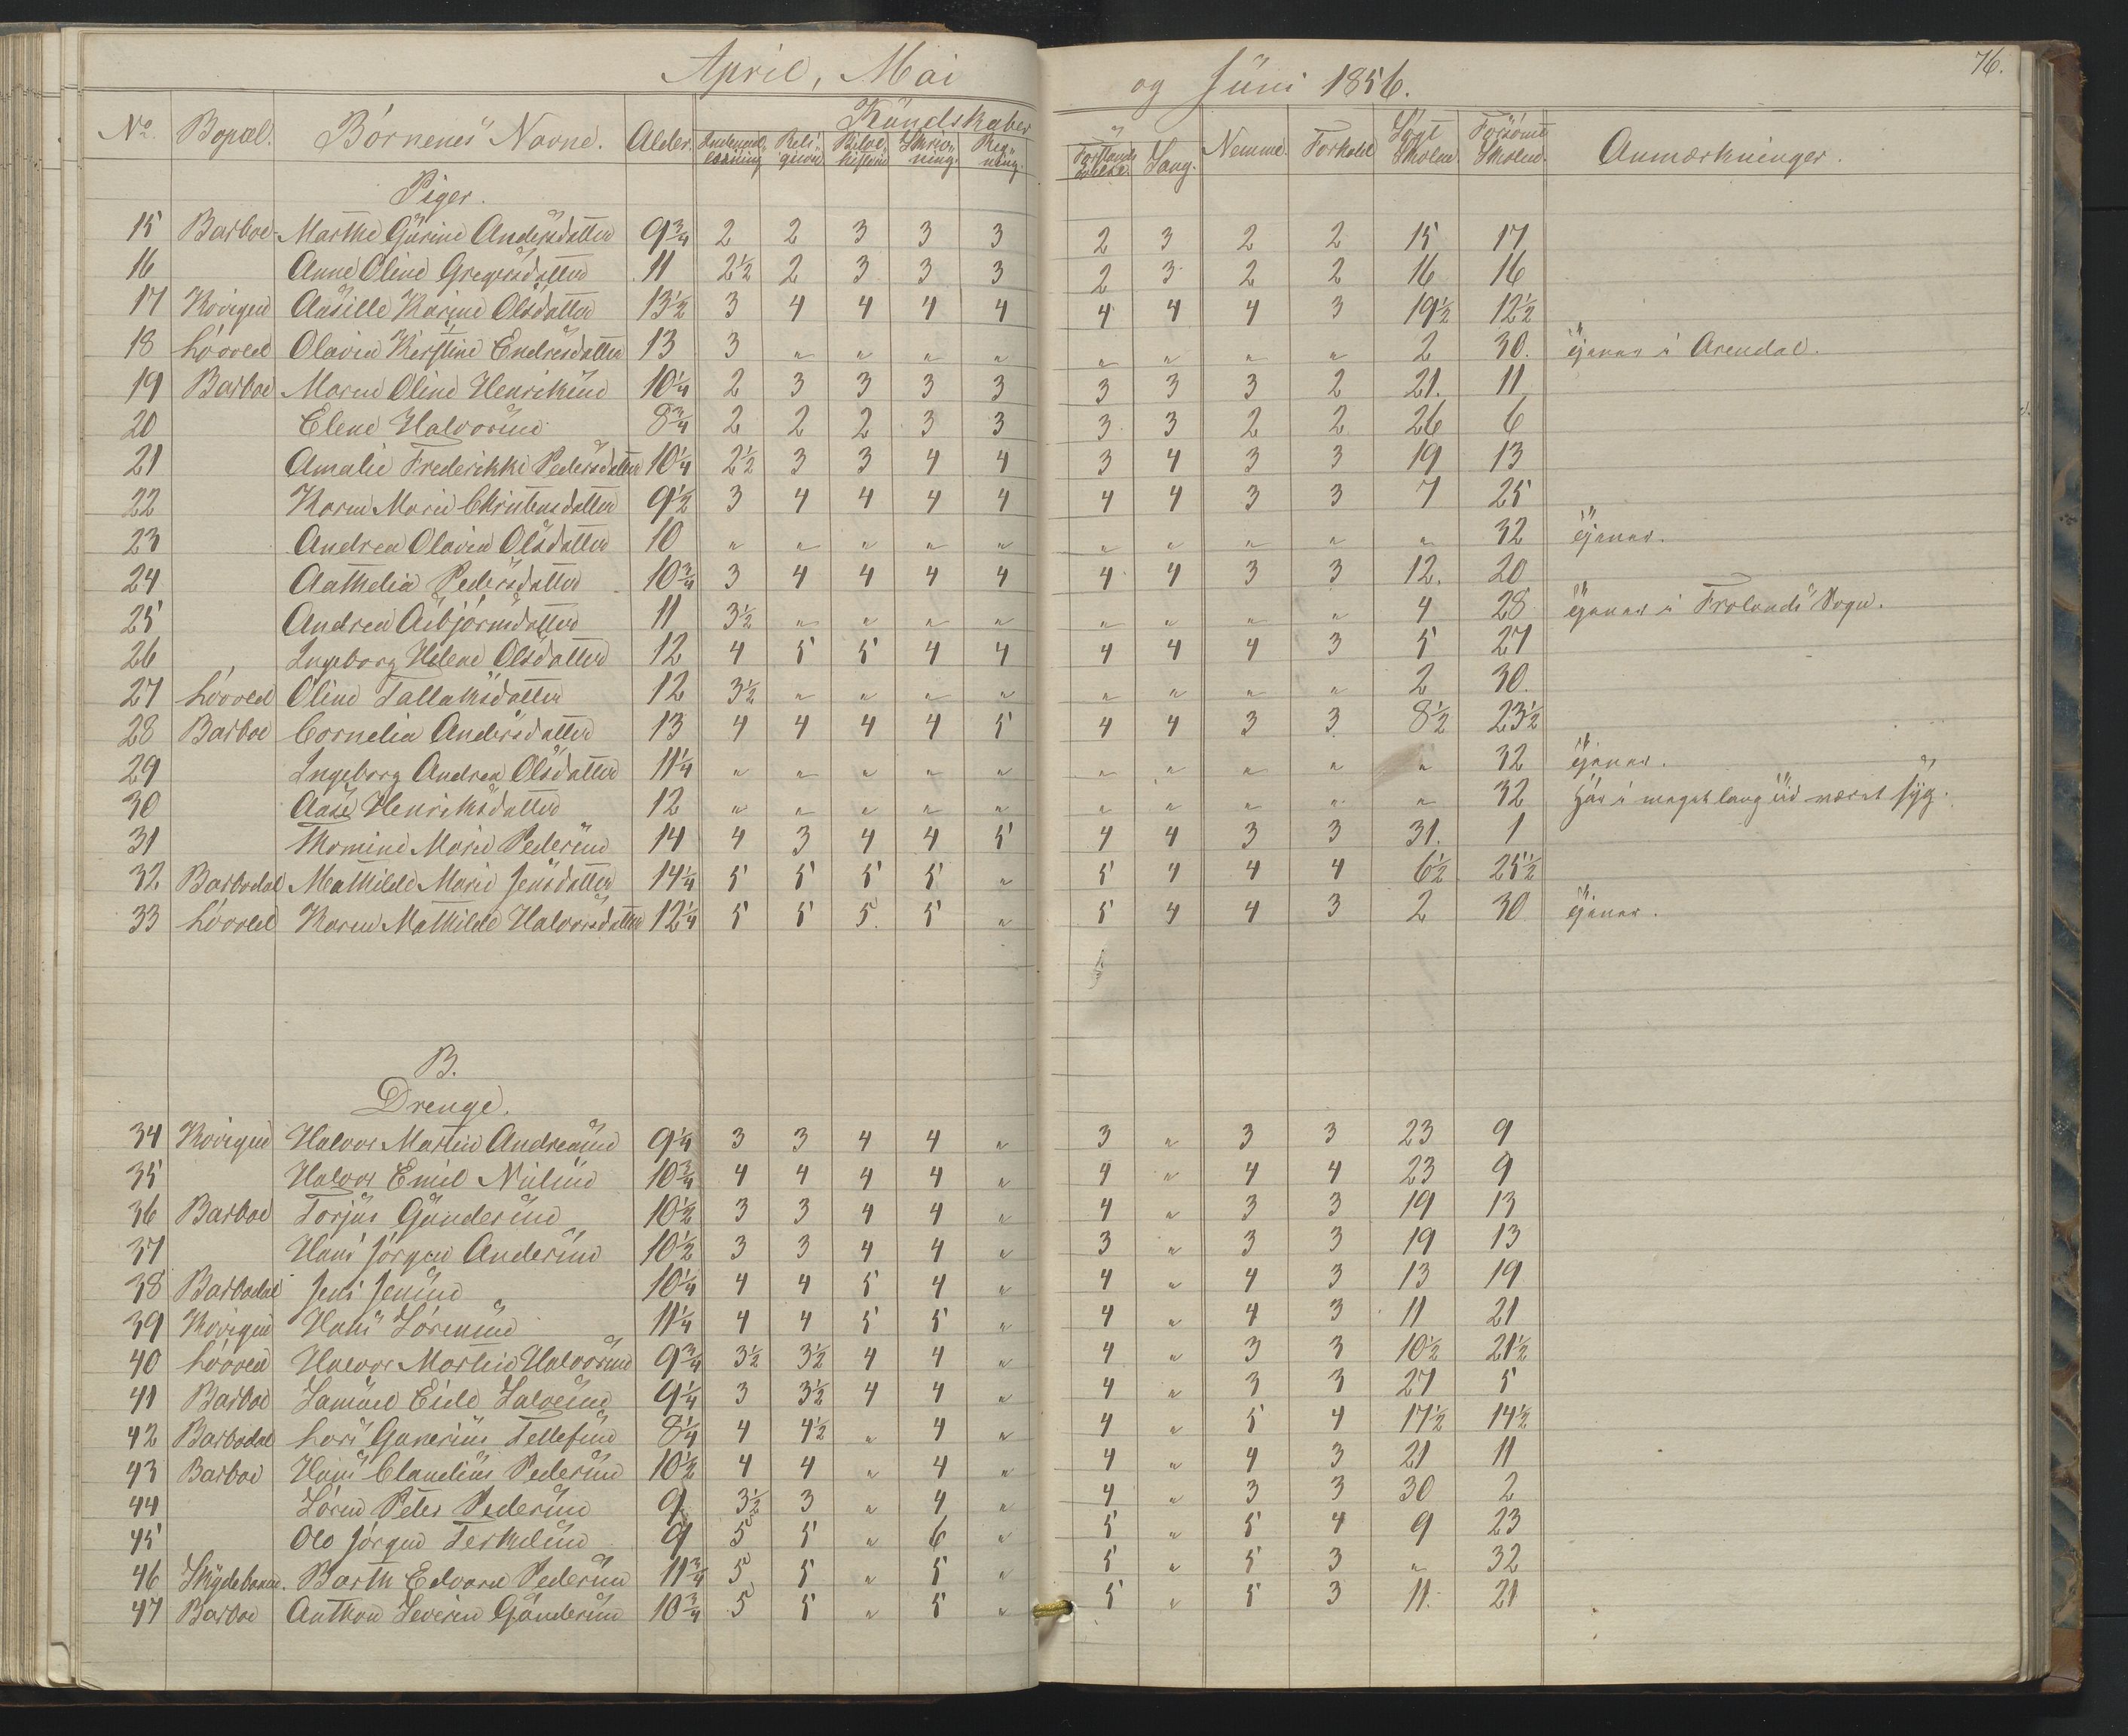 April, Mai og Juni 1856. 76.
No. Bopæl. Børnenes Navne. Alder. Kundskaber Nemme. Forhold Søgt Skolen. Forsømt Skolen. Anmærkninger.
Indenadlæsning Religion Bibelhistorie Skrivning. Regning. Forstandsøvelse. Sang.
Piger.
15 Barboe Marthe Gurine Andersdatter 9¾ 2 2 3 3 3 2 3 2 2 15 17
16 Anne Oline Gregersdatter 11 2½ 2 3 3 3 2 3 2 2 16 16
17 Kovigen Aasille Karine Olsdatter 13½ 3 4 4 4 4 4 4 4 3 19½ 12½
18 Løvold Olavia Kirstine Endresdatter 13 3 " " " " " " " " 2 30. tjener i Arendal.
19 Barboe Maren Oline Henriksen 10¼ 2 3 3 3 3 3 3 3 2 21. 11
20 Elene Halvorsen 8¾ 2 2 2 3 3 3 3 2 2 26 6
21 Amalie Frederikke Pedersdatter 10¼ 2½ 3 3 4 4 3 4 3 3 19 13
22 Karen Marie Christensdatter 9½ 3 4 4 4 4 4 4 3 3 7 25
23 Andrea Olavia Olsdatter 10 " " " " " " " " " " 32 tjener.
24 Aathelia Pedersdatter 10¾ 3 4 4 4 4 4 4 3 3 12. 20
25 Andrea Asbjørnsdatter 11 3½ " " " " " " " " 4 28 tjener i Frolands Sogn.
26 Ingeborg Helene Olsdatter 12 4 5 5 4 4 4 4 4 3 5 27
27 Løvold Oline Tallaksdatter 12 3½ " " " " " " " " 2 30.
28 Barboe Cornelia Andersdatter 13 4 4 4 4 5 4 4 3 3 8½ 23½
29 Ingeborg Andrea Olsdatter 11¼ " " " " " " " " " " 32 tjener.
30 Aase Henriksdatter 12 " " " " " " " " " " 32 har i meget lang tid været syg.
31 Thomine Marie Pedersen 14 4 3 4 4 5 4 4 3 3 31. 1
32 Barbodal Mathilde Marie Jensdatter 14¼ 5 5 5 5 " 5 4 4 4 6½ 25½
33 Løvold Karen Mathilde Halvorsdatter 12¼ 5 5 5. 5 " 5 4 4 3 2 30 tjener.
B.
Drenge.
34 Kovigen Halvor Martin Andreasen 9¼ 3 3 4 4 " 3 " 3 3 23 9
35 Halvor Emil Nilsen 10¾ 4 4 4 4 " 4 " 4 4 23 9
36 Barboe Torjus Gundersen 10½ 3 3 4 4 " 4 " 3 3 19 13
37 Hans Jørgen Andersen 10½ 3 3 4 4 " 3 " 3 3 19 13
38 Barbodal Jens Jensen 10¼ 4 4 5 4 " 4 " 4 3 13 19
39 Kovigen Hans Sørensen 11¼ 4 4 5 5 " 4 " 4 3 11 21
40 Løvold Halvor Martin Halvorsen 9¾ 3½ 3½ 4 4 " 4 " 3 3 10½ 21½
41 Barboe Samuel Eide Salvesen 9¼ 3 3½ 4 4 " 4 " 3 3 27 5
42 Barbodal Lars Gunerius Tellefsen 8¼ 4 4½ " 4 " 4 " 5 4 17½ 14½
43 Barboe Hans Claudius Pedersen 10½ 4 4 " 4 " 4 " 4 3 21 11
44 Søren Peter Pedersen 9 3½ 3 " 4 " 4 " 3 3 30 2
45 Ole Jørgen Terkelsen 9 5 5 " 6 " 5 " 5 4 9 23
46 Skydebanen. Barth Edvard Pedersen 11¾ 5 5 " 5 " 5 " 5 3 " 32
47 Barboe Anthon Severin Gundersen 10¾ 5 5 " 5 " 5 " 5 3 11. 21